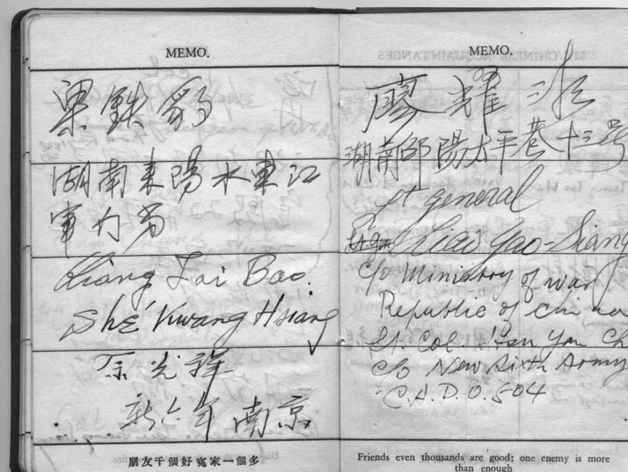 MEMO.
梁鉄豹
湖南耒陽水東江
Liang Tai Bao.
She Kwang Hsiang
佘光祥
新六軍 南京
朋友千個好寃家一個多
MEMO.
廖耀湘
湖南邵陽太平巷十三号
Lt general
Liao Yao-Siang
c/o Ministry of war
Republic of China
Lt. Col. Yan Ch
c/o New Sixth Army
C.A.D.O. 504
Friends even thousands are good; one enemy is more
than enough